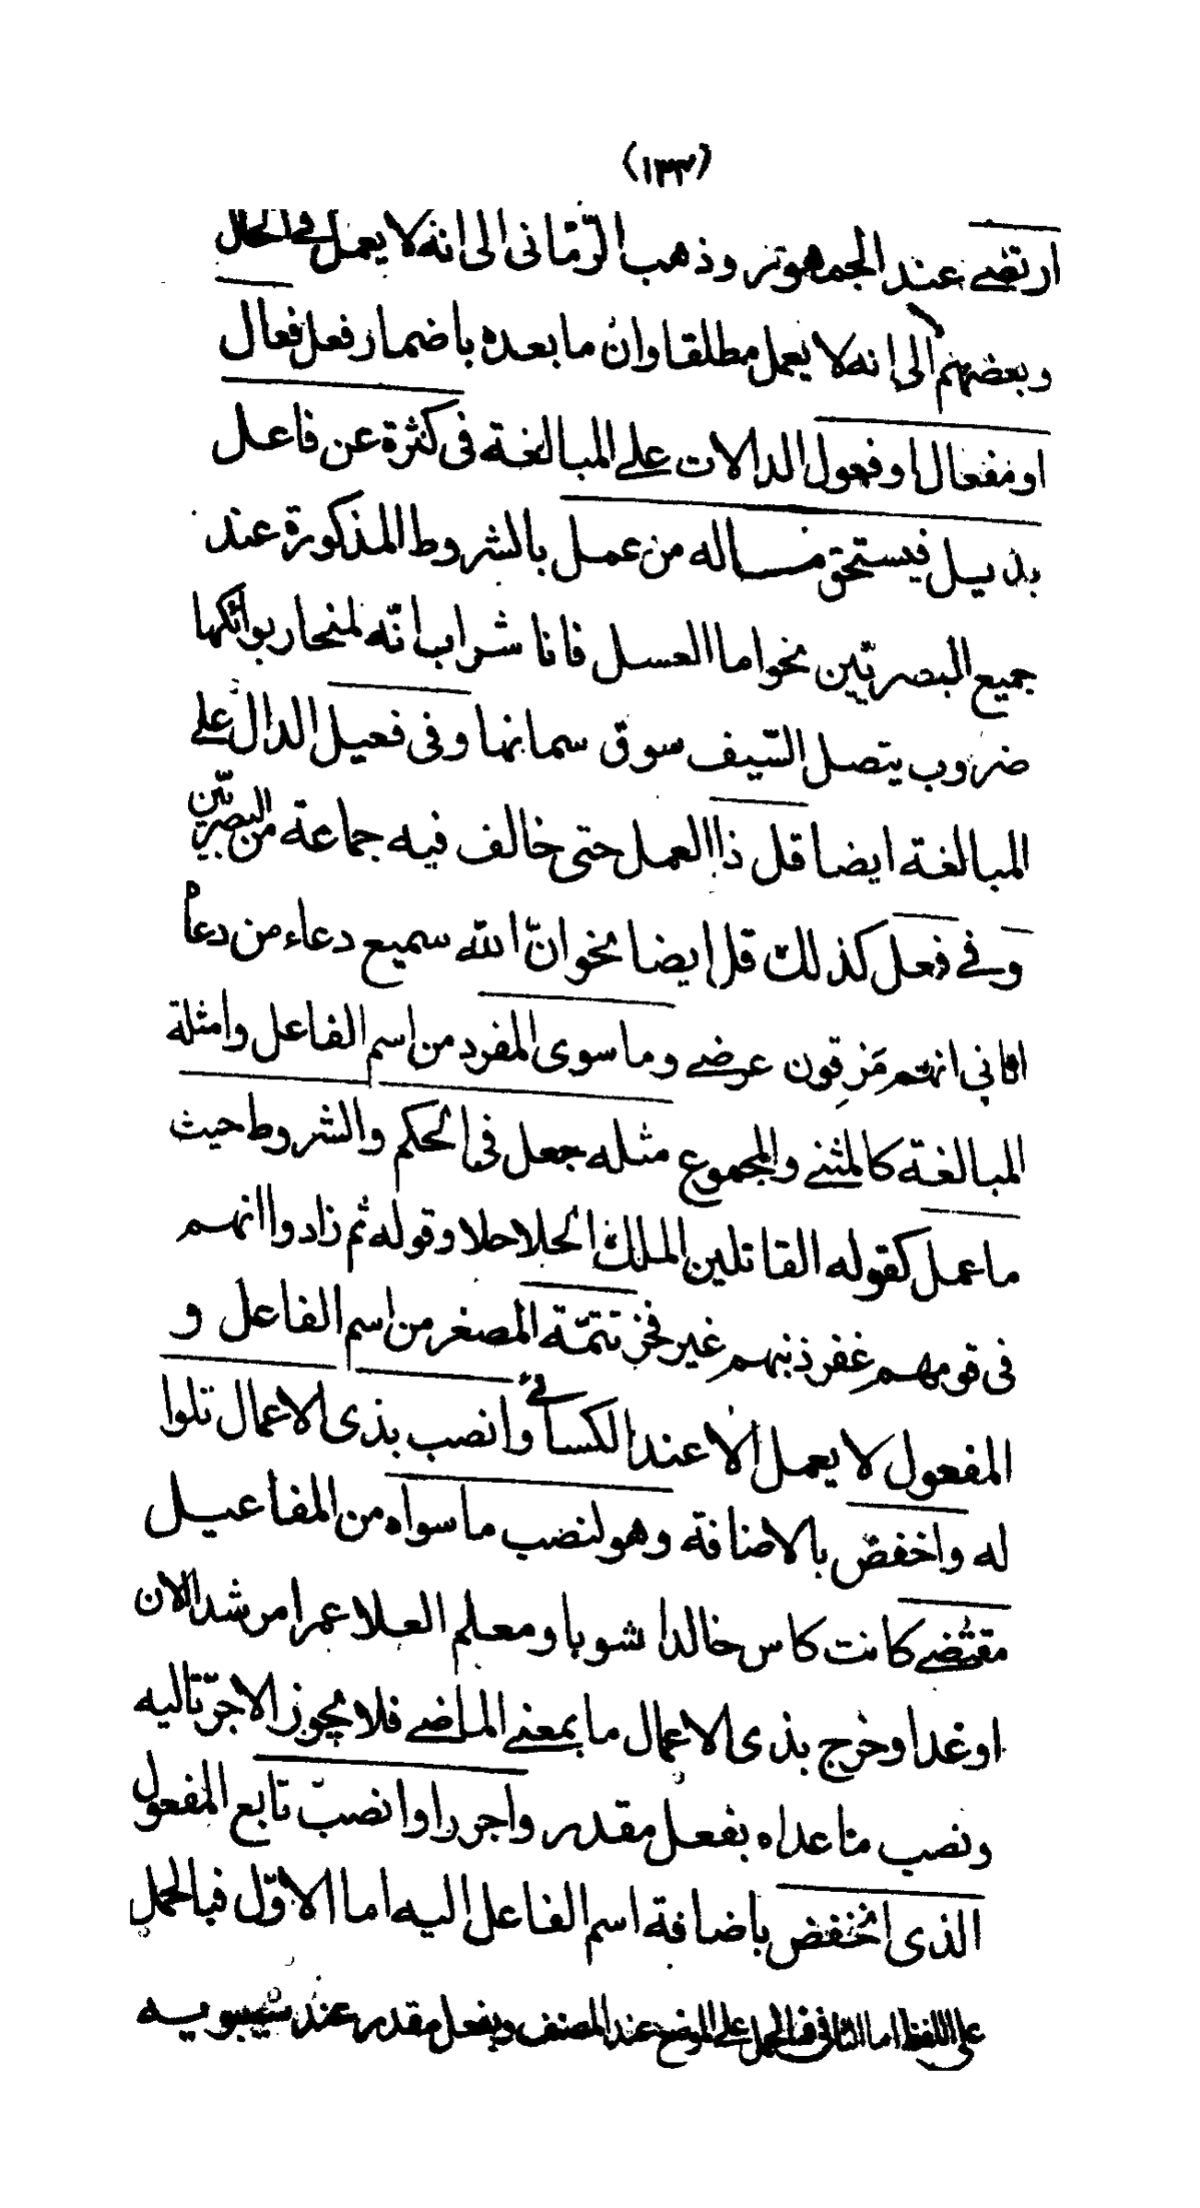 (١٣٣)
ارتضى عند الجمهور وذهب الرّمّانى الى انه لا يعمل فى الحال
وبعضهم الى انه لا يعمل مطلقا وان ما بعده باضمار فعل فعال
او مفعال او فعول الدالات على المبالغة فى كثرة عن فاعل
بديل فيستحق ماله من عمل بالشروط المذكورة عند
جميع البصريّين نحو اما العسل فانا شراب انّه لمنحار بوائكها
ضروب بنصل السّيف سوق سمانها وفى فعيل الدال على
المبالغة ايضا قل ذا العمل حتى خالف فيه جماعة من البصريّين
وفى فعل كذلك قل ايضا نحو انّ الله سميع دعاء من دعاه
اتانى انهم مَزِقون عرضى وما سوى المفرد من اسم الفاعل وامثلة
المبالغة كالمثنى والمجموع مثله جعل فى الحكم والشروط حيث
ما عمل كقوله القاتلين الملك الحلاحلا وقوله ثم زادوا انهم
فى قومهم غفر ذنبهم غير فخر تتمّة المصغر من اسم الفاعل و
المفعول لا يعمل الا عند الكسائى وانصب بذى الاعمال تلوا
له واخفض بالاضافة وهو لنصب ما سواه من المفاعيل
مقتضى كانت كاس خالدا ثوبا ومعلم العلا عمرا مرشدا الان
او غدا وخرج بذى الاعمال ما بمعنى الماضى فلا يجوز الا جرّ تاليه
ونصب ما عداه بفعل مقدر واجرر او انصب تابع المفعول
الذى انخفض باضافة اسم الفاعل اليه اما الاوّل فبالحمل
على اللفظ اما الثانى فبالحمل على الموضع عند المصنف وبفعل مقدر عند سيبويه